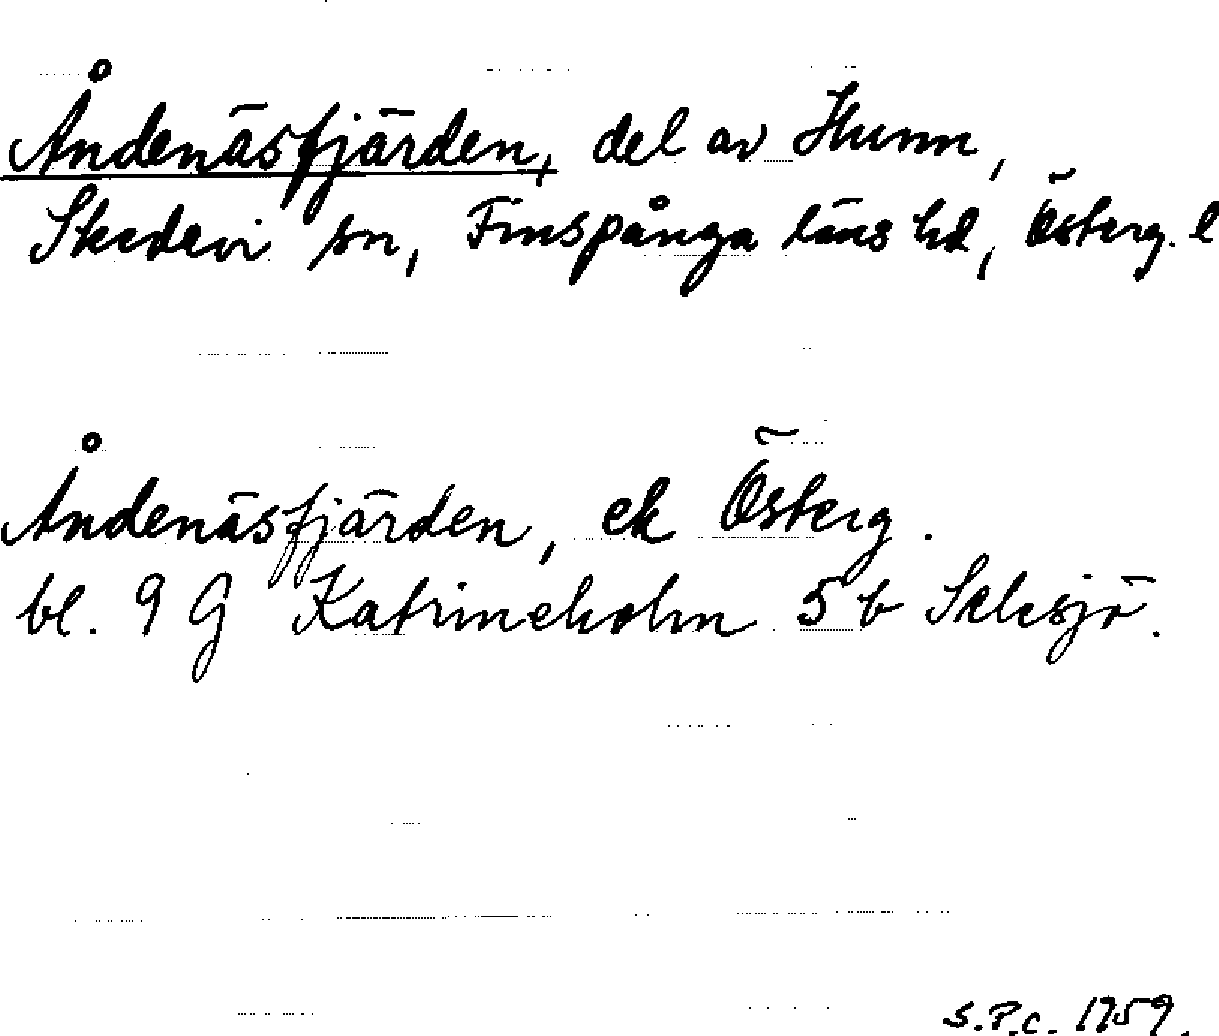 Åndenäsfjärden, del av Hunn,
Skedevi sn, Finspånga läns hd, Österg. l
Åndenäsfjärden, ek Österg.
bl. 9 G Katrineholm 5 b
S.P.C. 1959.